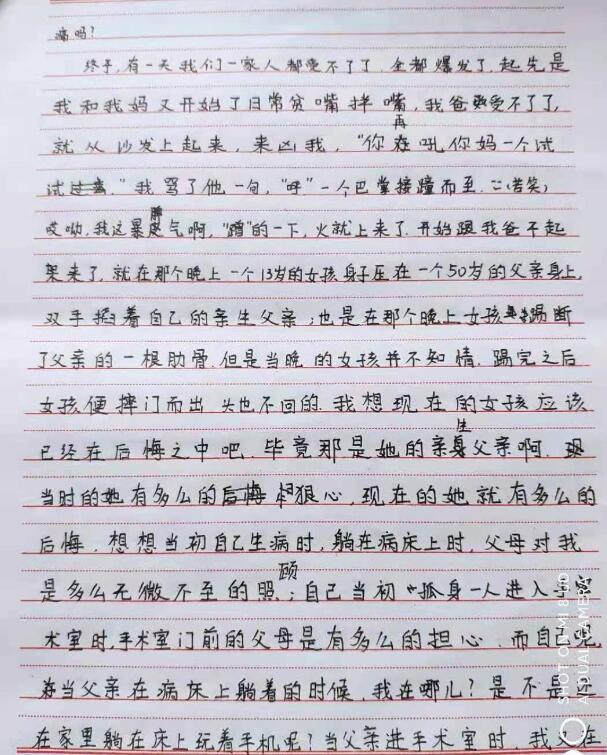 痛吗？
终于,有一天我们一家人都受不了了,全都爆发了,起先是
我和我妈又开始了日常贫嘴拌嘴,我爸受不了了,
就从沙发上起来,来凶我,"你再吼你妈一个试
试"我骂了他一句,"呼"一个巴掌接踵而至.(苦笑)
哎呦,我这暴脾气啊,"蹭"的一下,火就上来了.开始跟我爸不起
架来了,就在那个晚上一个13岁的女孩身子压在一个50岁的父亲身上,
双手掐着自己的亲生父亲;也是在那个晚上女孩踢断
了父亲的一根肋骨.但是当晚的女孩并不知情.踢完之后
女孩便摔门而出头也不回的.我想现在的女孩应该
已经在后悔之中吧.毕竟那是她的亲生父亲啊.
当时的她有多么的狠心,现在的她就有多么的
后悔.想想当初自己生病时,躺在病床上时,父母对我
是多么无微不至的照顾;自己当初孤身一人进入手
术室时,手术室门前的父母是有多么的担心.而自己
当父亲在病床上躺着的时候,我在哪儿?是不是
在家里躺在床上玩着手机呢?当父亲进手术室时,我又在
SHOT ON MI 8 UD
AI DUAL CAMERA